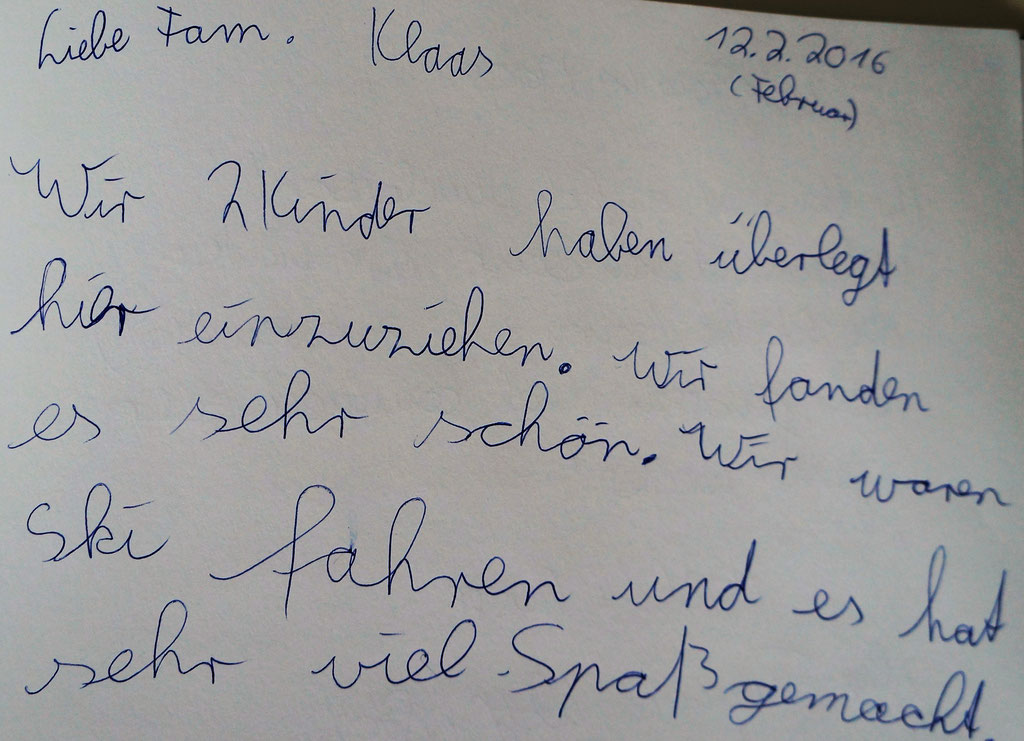 Liebe Fam. Klaas 12.2.2016
(Februar)
Wir 2 Kinder haben überlegt
hier einzuziehen. Wir fanden
es sehr schön. Wir waren
Ski fahren und es hat
sehr viel Spaß gemacht.